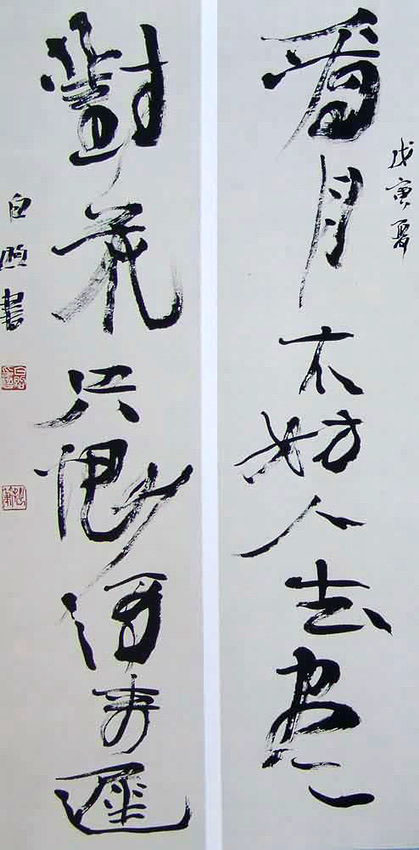 戊寅夏
看月不妨人去盡
對花只恨酒來遲
白煦書